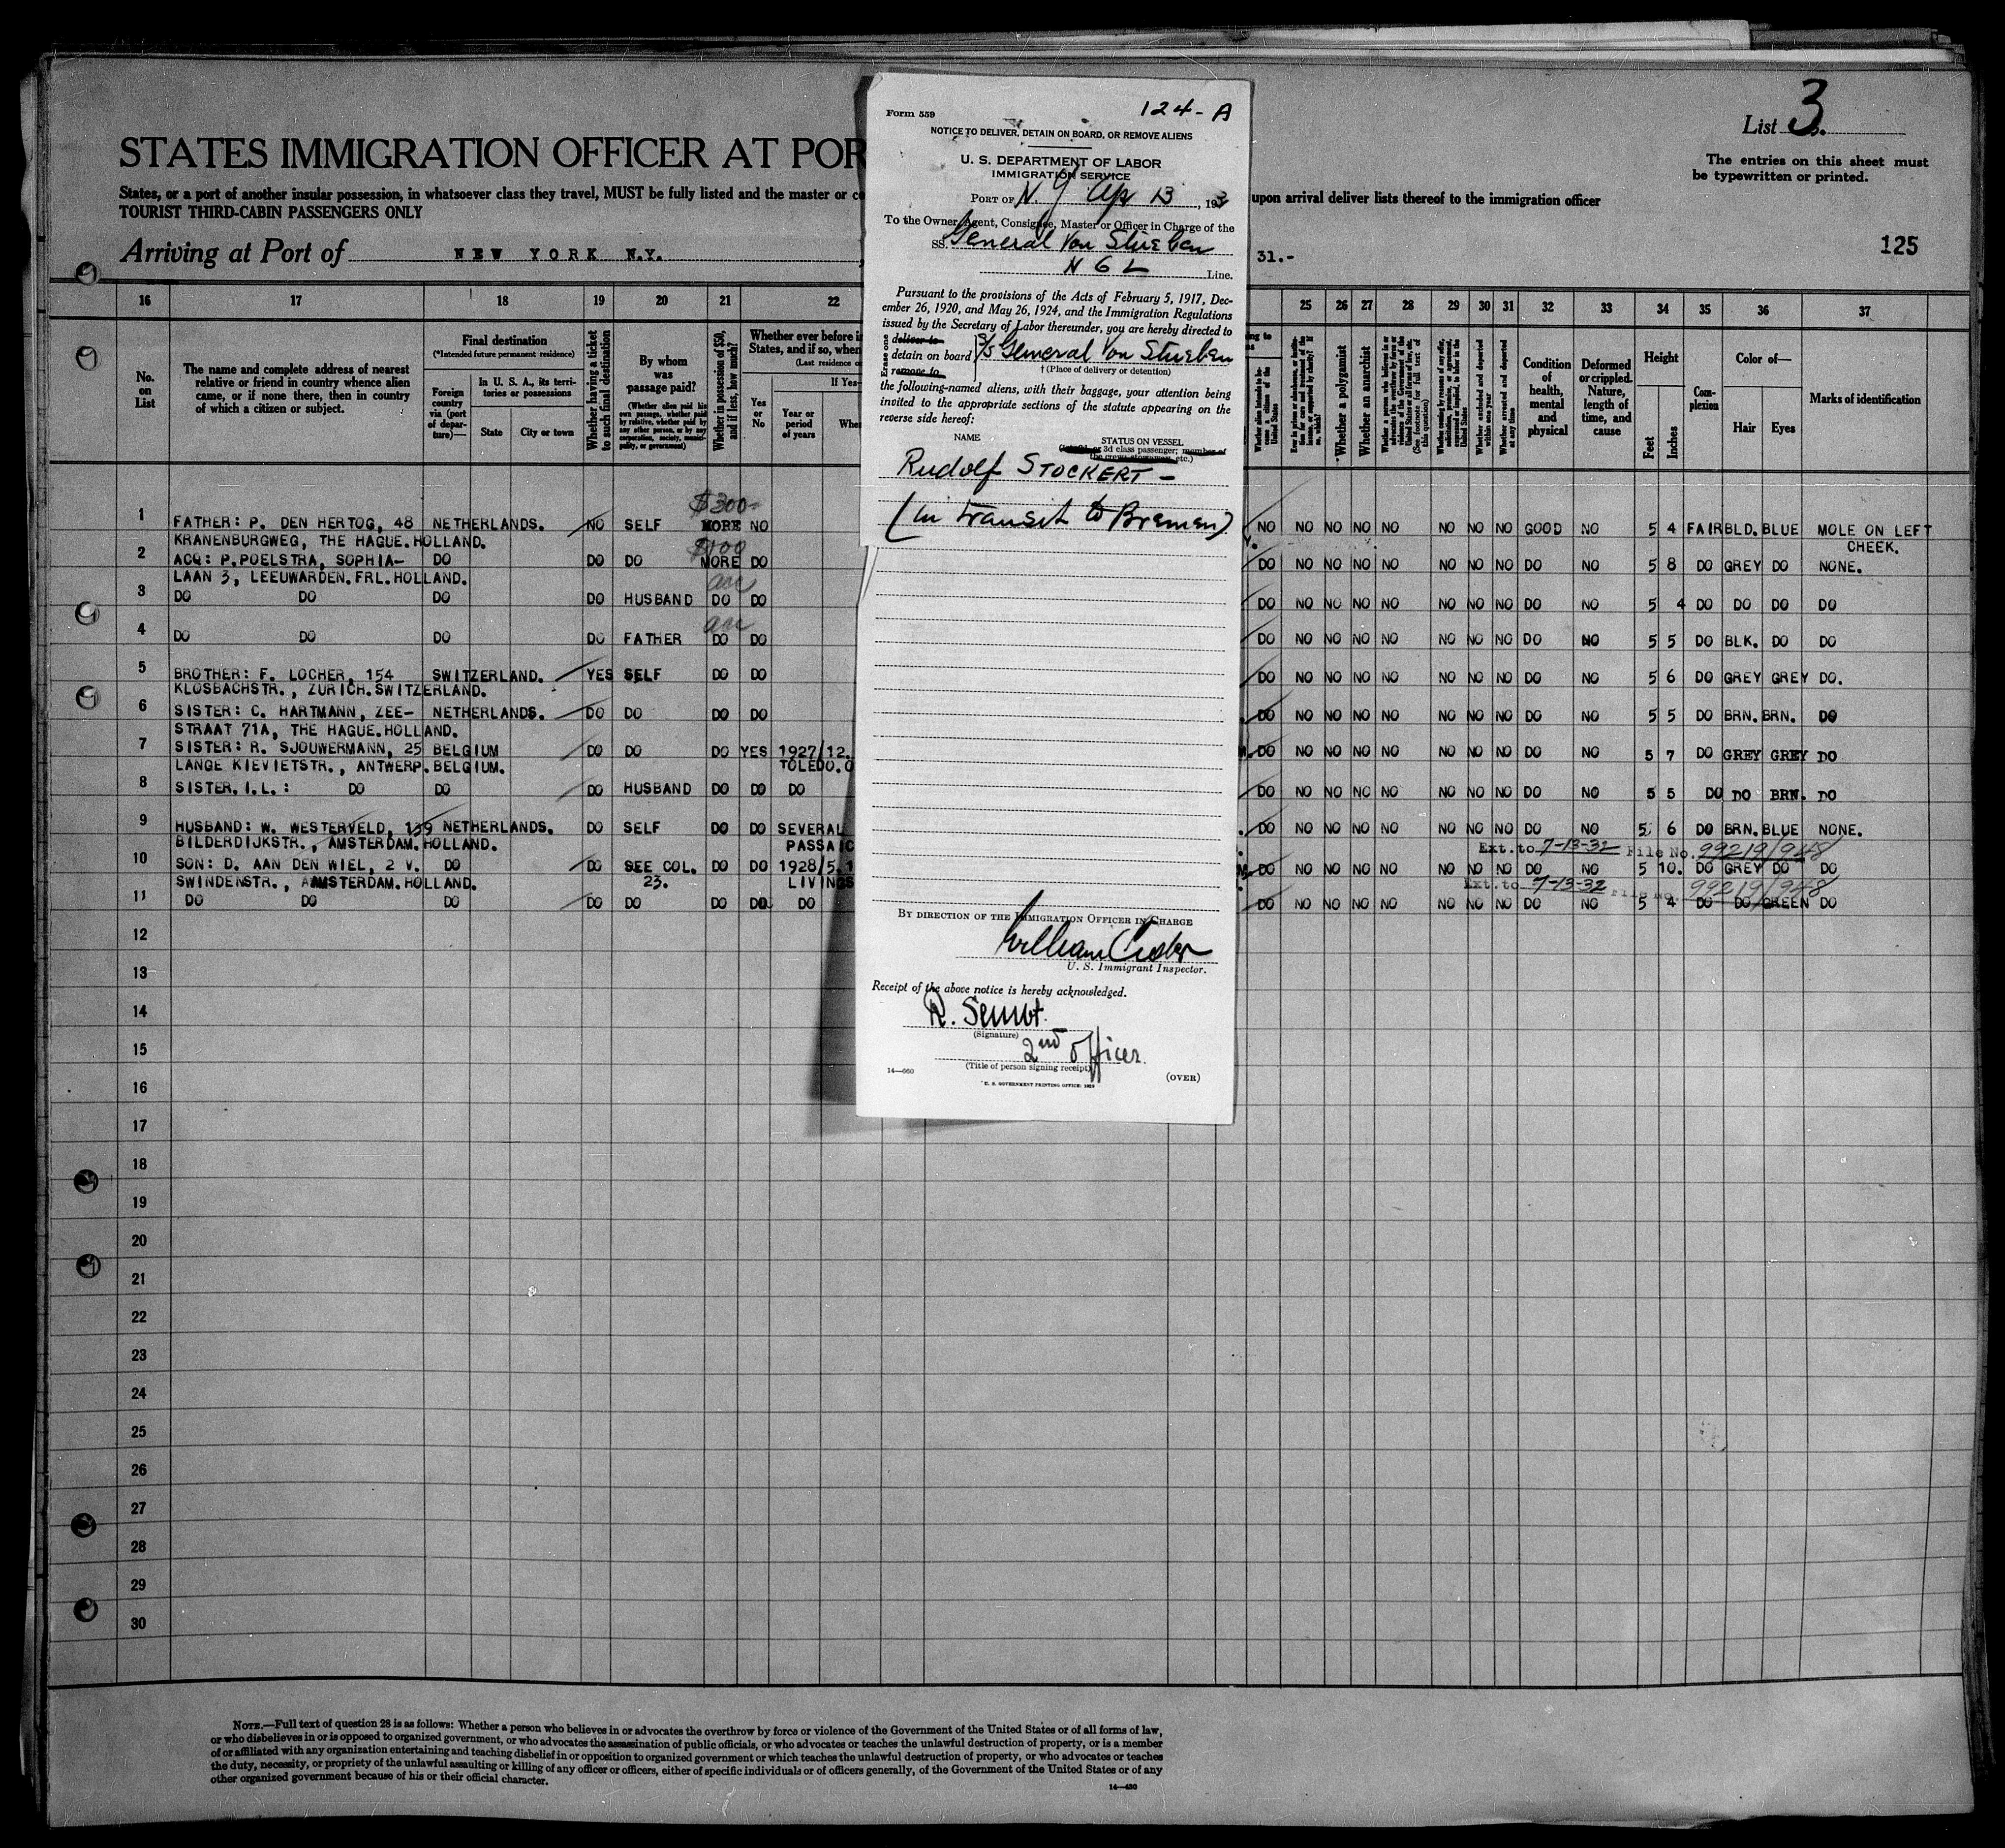 124-A
Form 559
NOTICE TO DELIVER, DETAIN ON BOARD, OR REMOVE ALIENS
U. S. DEPARTMENT OF LABOR
IMMIGRATION SERVICE
PORT OF N.Y. Apr 13, 193
To the Owner, Agent, Consignee, Master or Officer in Charge of the
SS. General Von Stueben
N G L Line.
Pursuant to the provisions of the Acts of February 5, 1917, Dec-
ember 26, 1920, and May 26, 1924, and the Immigration Regulations
issued by the Secretary of Labor thereunder, you are hereby directed to
Erase one
deliver to
detain on board
remove to
S/S General Von Stueben
† (Place of delivery or detention)
the following-named aliens, with their baggage, your attention being
invited to the appropriate sections of the statute appearing on the
reverse side hereof:
NAME
STATUS ON VESSEL
3d class passenger; member of
the crew, stowaway, etc.)
Rudolf STOCKERT -
(in transit to Bremen)
BY DIRECTION OF THE IMMIGRATION OFFICER IN CHARGE
William
U. S. Immigrant Inspector.
Receipt of the above notice is hereby acknowledged.
R.
(Signature)
2nd Officer.
(Title of person signing receipt)
14—660
U. S. GOVERNMENT PRINTING OFFICE: 1929
(OVER)
List 3.
The entries on this sheet must
be typewritten or printed.
STATES IMMIGRATION OFFICER AT POR
States, or a port of another insular possession, in whatsoever class they travel, MUST be fully listed and the master or co
upon arrival deliver lists thereof to the immigration officer
TOURIST THIRD-CABIN PASSENGERS ONLY
Arriving at Port of NEW YORK N.Y.
31.-
125
16 17 18 19 20 21 22 25 26 27 28 29 30 31 32 33 34 35 36 37
No. on List
The name and complete address of nearest
relative or friend in country whence alien
came, or if none there, then in country
of which a citizen or subject.
Final destination
(*Intended future permanent residence)
Foreign country via (port of departure)—
In U. S. A., its territories or possessions
State
City or town
Whether having a ticket to such final destination
By whom was passage paid?
(Whether alien paid his own passage, whether paid by relative, whether paid by any other person, or by any corporation, society, municipality, or government)
Whether in possession of $50, and if less, how much?
Whether ever before i
States, and if so, when
(Last residence o
If Yes—
Yes or No
Year or period of years
Whe
Whether a polygamist
Whether an anarchist
Whether excluded and deported within one year
Whether arrested and deported at any time
Condition of health, mental and physical
Deformed or crippled. Nature, length of time, and cause
Height
Feet
Inches
Complexion
Color of—
Hair
Eyes
Marks of identification
$300-
1 FATHER: P. DEN HERTOG, 48 NETHERLANDS. NO SELF MORE NO NO NO NO NO NO NO NO NO GOOD NO 5 4 FAIR BLD. BLUE MOLE ON LEFT
KRANENBURGWEG, THE HAGUE.HOLLAND. CHEEK.
$100
2 ACQ: P.POELSTRA, SOPHIA- DO DO DO MORE DO DO NO NO NO NO NO NO NO DO NO 5 8 DO GREY DO NONE.
LAAN 3, LEEUWARDEN.FRL.HOLLAND.
3 DO DO DO DO HUSBAND DO DO DO NO NO NO NO NO NO NO DO NO 5 4 DO DO DO DO
4 DO DO DO DO FATHER DO DO DO NO NO NO NO NO NO NO DO NO 5 5 DO BLK. DO DO
5 BROTHER: F. LOCHER, 154 SWITZERLAND. YES SELF DO DO DO NO NO NO NO NO NO NO DO NO 5 6 DO GREY GREY DO.
KLOSBACHSTR., ZURICH.SWITZERLAND.
6 SISTER: C. HARTMANN, ZEE- NETHERLANDS. DO DO DO DO DO NO NO NO NO NO NO NO DO NO 5 5 DO BRN. BRN. DO
STRAAT 71A, THE HAGUE.HOLLAND.
7 SISTER: R. SJOUWERMANN, 25 BELGIUM DO DO DO YES 1927/12. DO NO NO NO NO NO NO NO DO NO 5 7 DO GREY GREY DO
LANGE KIEVIETSTR., ANTWERP.BELGIUM. TOLEDO.O
8 SISTER.I.L.: DO DO DO HUSBAND DO DO DO DO NO NO NO NO NO NO NO DO NO 5 5 DO DO BRN. DO
9 HUSBAND: W. WESTERVELD, 139 NETHERLANDS. DO SELF DO DO SEVERAL DO NO NO NO NO NO NO NO DO NO 5 6 DO BRN. BLUE NONE.
BILDERDIJKSTR., AMSTERDAM.HOLLAND. PASSAIC
Ext. to 7-13-32 File No. 99219/948
10 SON: D. AAN DEN WIEL, 2 V. DO DO SEE COL. DO DO 1928/5.1 DO NO NO NO NO NO NO NO DO NO 5 10. DO GREY DO DO
SWINDENSTR., AMSTERDAM.HOLLAND. 23. LIVINGS
Ext. to 7-13-32 File No. 99219/948
11 DO DO DO DO DO DO DO DO DO NO NO NO NO NO NO NO DO NO 5 4 DO DO GREEN DO
12
13
14
15
16
17
18
19
20
21
22
23
24
25
26
27
28
29
30
NOTE.—Full text of question 28 is as follows: Whether a person who believes in or advocates the overthrow by force or violence of the Government of the United States or of all forms of law,
or who disbelieves in or is opposed to organized government, or who advocates the assassination of public officials, or who advocates or teaches the unlawful destruction of property, or is a member
of or affiliated with any organization entertaining and teaching disbelief in or opposition to organized government or which teaches the unlawful destruction of property, or who advocates or teaches
the duty, necessity, or propriety of the unlawful assaulting or killing of any officer or officers, either of specific individuals or of officers generally, of the Government of the United States or of any
other organized government because of his or their official character.
14—430